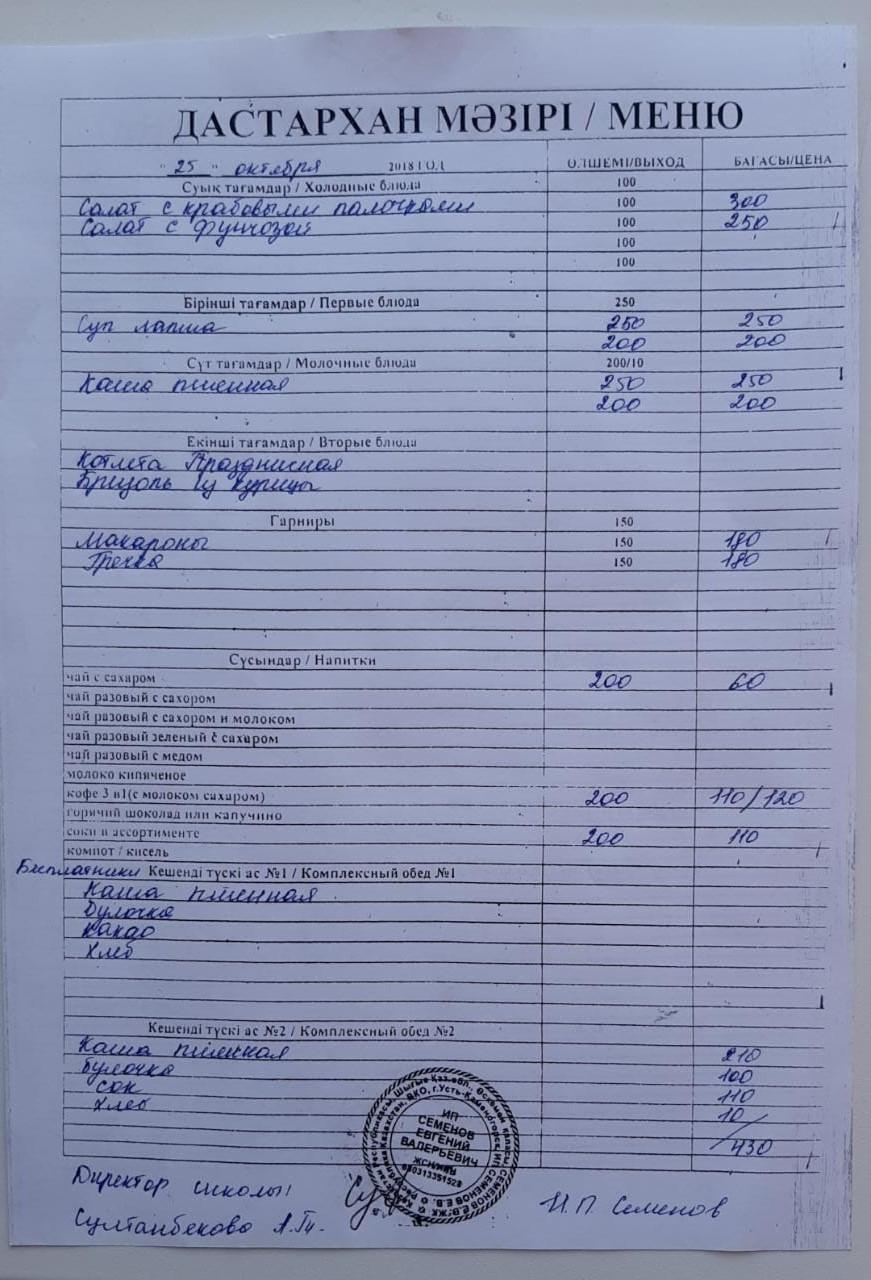 ДАСТАРХАН МӘЗІРІ / МЕНЮ
"25" октября 2018 ГОД ӨЛШЕМІ/ВЫХОД БАҒАСЫ/ЦЕНА
Суық тағамдар / Холодные блюда 100
Салат с крабовыми палочками 100 300
Салат с фунчозой 100 250
100
100
Бірінші тағамдар / Первые блюда 250
Суп лапша 250 250
200 200
Сүт тағамдар / Молочные блюда 200/10
Каша пшенная 250 250
200 200
Екінші тағамдар / Вторые блюда
Котлета Праздничная
Бризоль из курицы
Гарниры 150
Макароны 150 180
Гречка 150 180
Сусындар / Напитки
чай с сахаром 200 60
чай разовый с сахором
чай разовый с сахором и молоком
чай разовый зеленый с сахаром
чай разовый с медом
молоко кипяченое
кофе 3 в1(с молоком сахаром) 200 110/120
горячий шоколад или капучино
соки в ассортименте 200 110
компот / кисель
Бесплатники Кешенді түскі ас №1 / Комплексный обед №1
Каша пшенная
Булочка
какао
Хлеб
Кешенді түскі ас №2 / Комплексный обед №2
Каша пшенная 210
Булочка 100
сок 110
хлеб 10
430
ИП
СЕМЕНОВ
ЕВГЕНИЙ
ВАЛЕРЬЕВИЧ
Директор школы:
Султанбекова И.П. Семенов